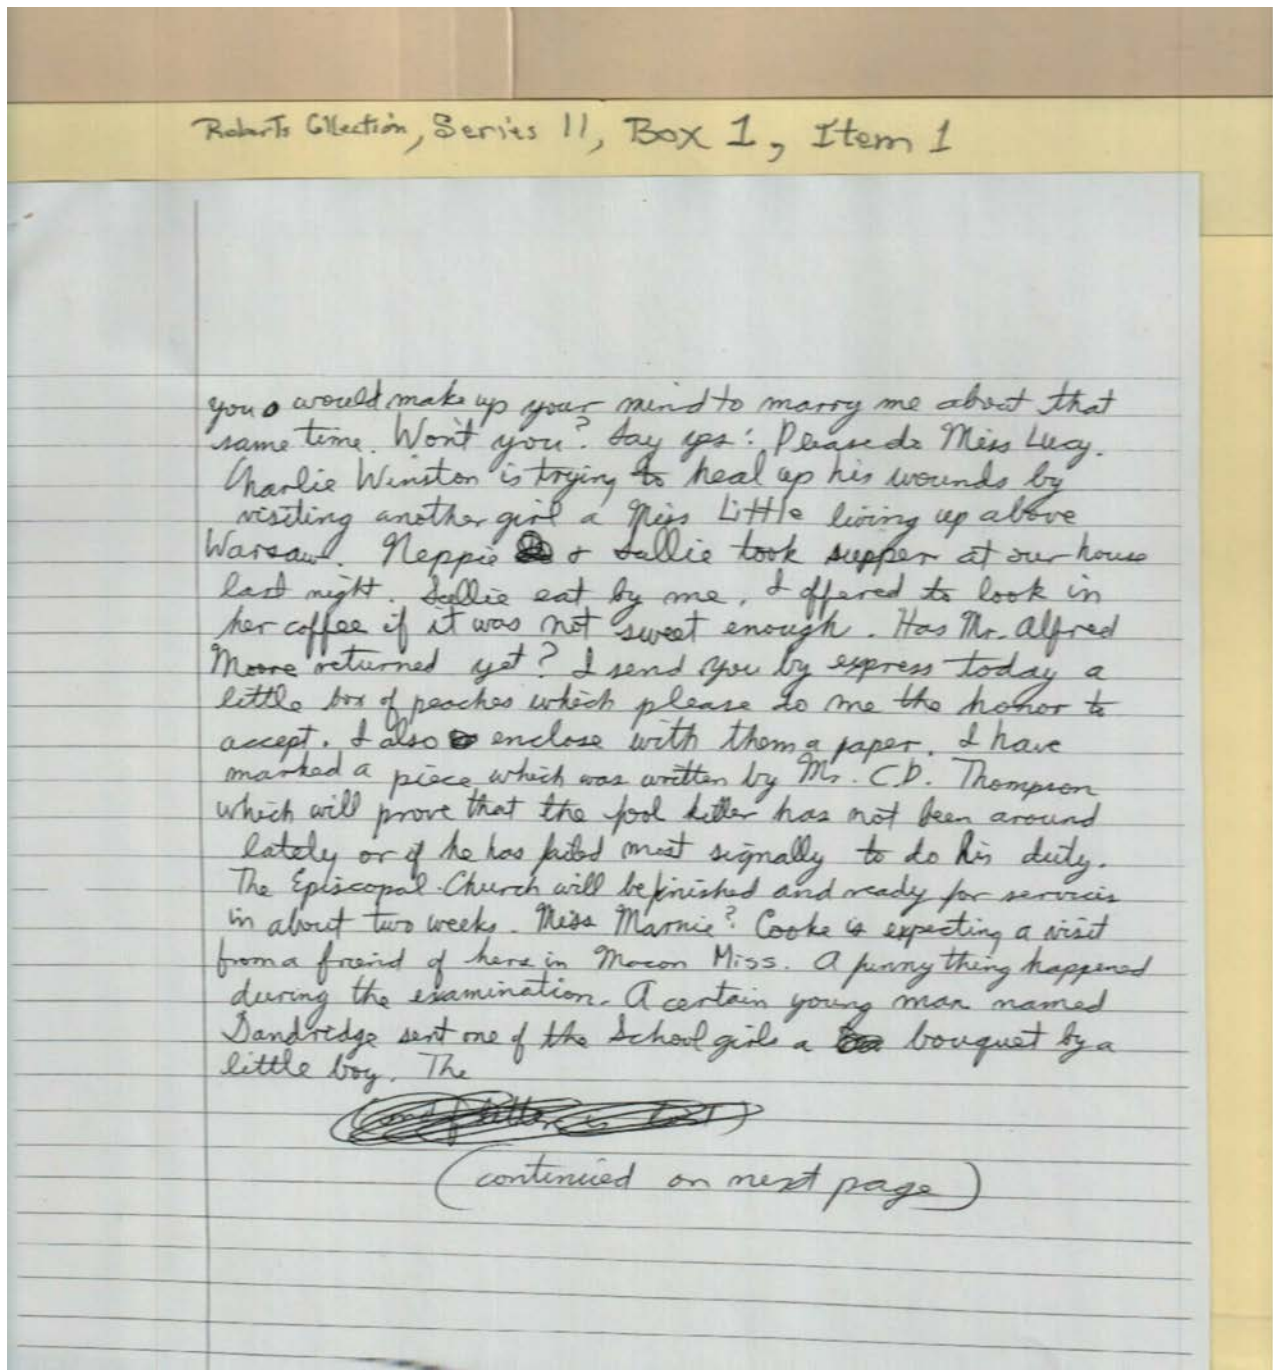 Roberts Cllection, Series 11, Box 1, Item 1
you would make up your mind to marry me about that
same time. Won't you? Say yes! Please do Miss Lucy.
Charlie Winston is trying to heal up his wounds by
visiting another girl a Miss Little living up above
Warsaw. Neppie & Sallie took supper at our house
last night. Sallie eat by me. I offered to look in
her coffee if it was not sweet enough. Has Mr. Alfred
Moore returned yet? I send you by express today a
little box of peaches which please do me the honor to
accept. I also enclose with them a paper. I have
marked a piece which was written by Mr. C.D. Thompson
which will prove that the fool killer has not been around
lately or if he has failed most signally to do his duty.
The Episcopal Church will be finished and ready for services
in about two weeks. Miss Marnie? Cooke is expecting a visit
from a friend of hers in Macon Miss. A funny thing happened
during the examination. A certain young man named
Dandridge sent one of the School girls a bouquet by a
little boy. The
(continued on next page)